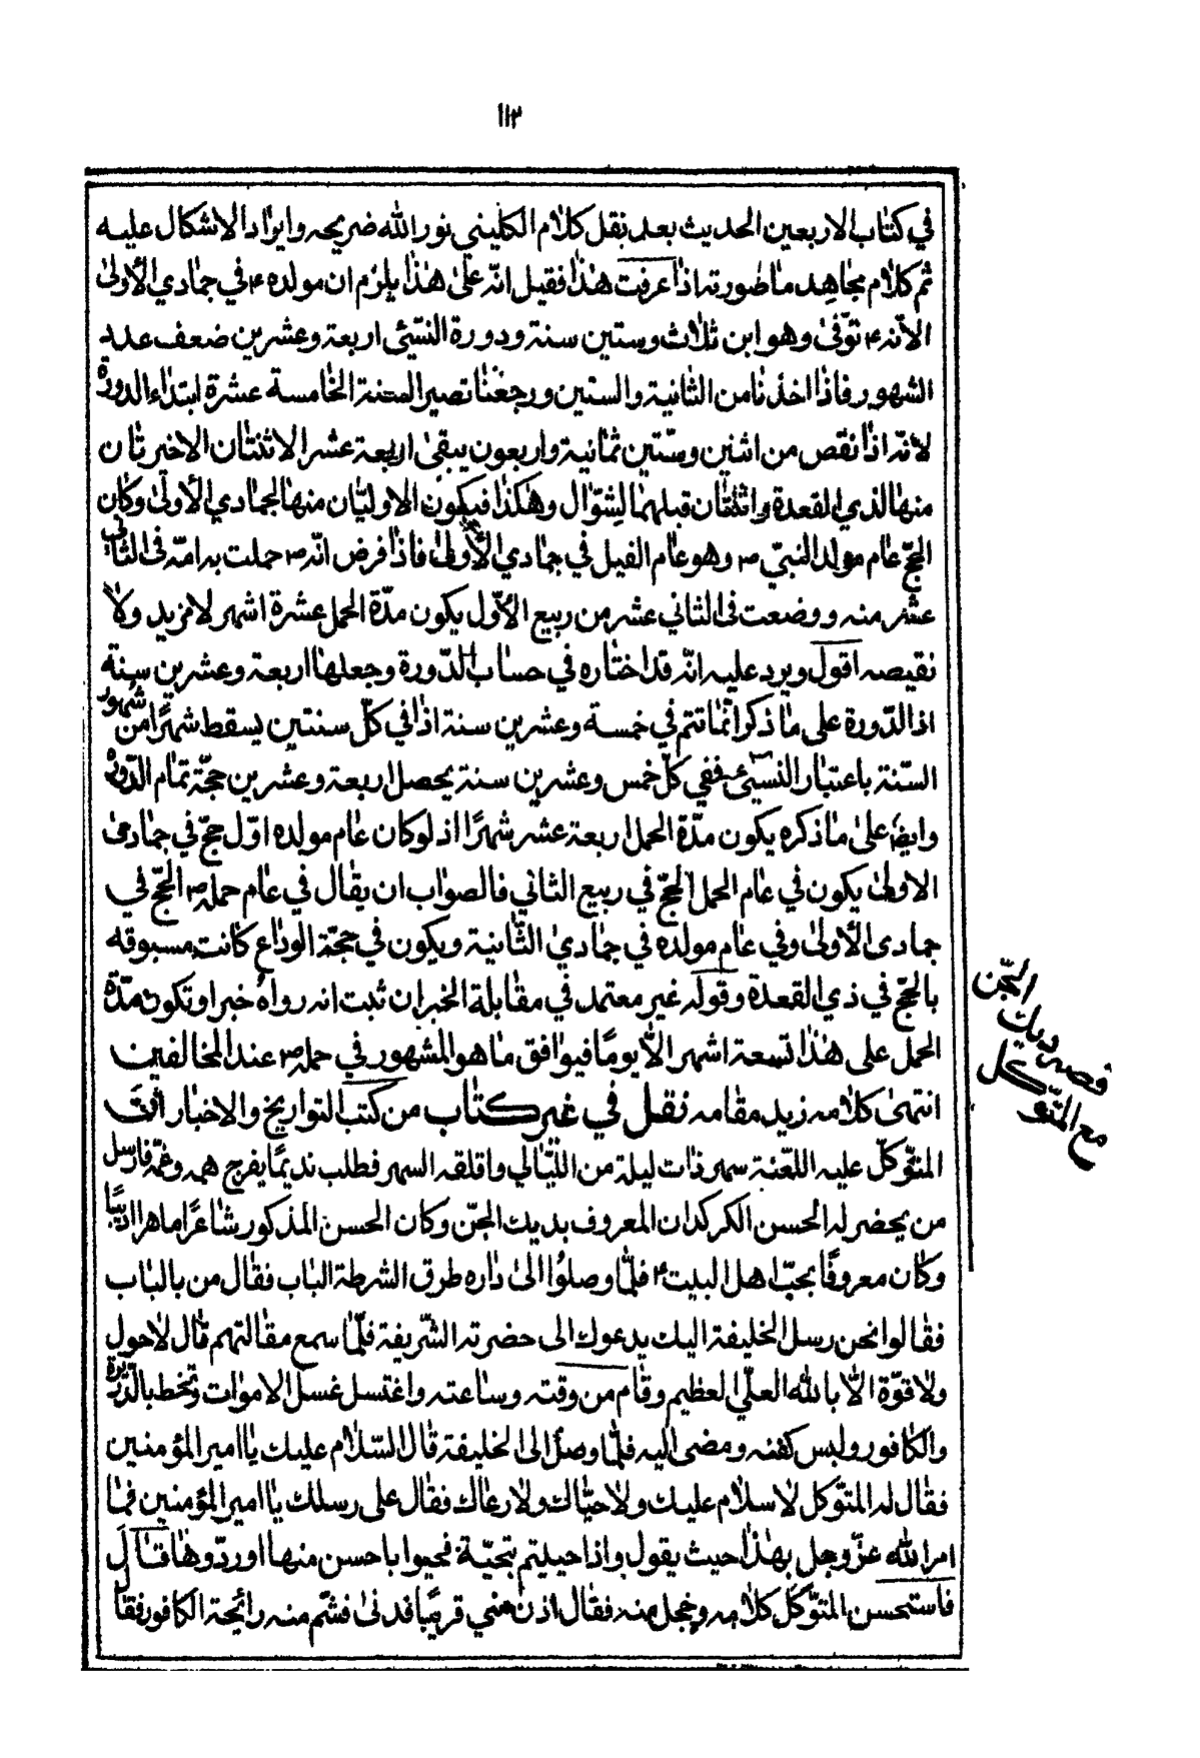 ١١٣
في كتاب الاربعين الحديث بعد نقل كلام الكليني نور الله ضريحه وايراد الاشكال عليه
ثم كلام مجاهد ما صورته اذا عرفت هذا فقيل انّه على هذا يلزم ان مولده ع في جمادي الأولى
الانّه ع توّفى وهو ابن ثلاث وستين سنة ودورة النسّيئ اربعة وعشرين ضعف عدد
الشهور فاذا اخذنا من الثانية والستين ورجعنا تصير السنة الخامسة عشرة ابتداء الدورة
لانّه اذا نقص من اثنين وستّين ثمانية واربعون يبقى اربعة عشر الاثنتان الاخيرتان
منها لذي القعدة واثنتان قبلهما لشوّال وهكذا فيكون الاوليّان منها لجمادي الأولى وكان
الحجّ عام مولد النبيّ ص وهو عام الفيل في جمادي الأولى فاذا فرض انّه ص حملت به امّه فى الثاني
عشر منه ووضعت فى الثاني عشر من ربيع الأوّل يكون مدّة الحمل عشرة اشهر لا مزيد ولا
نقيصه اقول ويرد عليه انّه قد اختاره في حساب الدّورة وجعلها اربعة وعشرين سنة
اذ الدّورة على ما ذكر انّما تتم في خمسة وعشرين سنة اذا في كلّ سنتين يسقط شهرًا من شهور
السّنة باعتبار النسيئ ففي كلّ خمس وعشرين سنة يحصل اربعة وعشرين حجّة تمام الدّورة
وايضا على ما ذكره يكون مدّة الحمل اربعة عشر شهرًا اذ لو كان عام مولده اوّل حجّ في جمادى
الاولى يكون في عام الحمل الحجّ في ربيع الثاني فالصواب ان يقال في عام حمله ص الحجّ في
جمادى الأولى وفي عام مولده في جمادي الثّانية ويكون في حجّة الوداع كانت مسبوقه
بالحجّ في ذي القعدة وقوله غير معتمد في مقابلة الخبر ان ثبت انه رواه خبرا وتكون مدّة
الحمل على هذا تسعة اشهر الّا يومًا فيوافق ما هو المشهور في حمله ص عند المخالفين
انتهى كلامه زيد مقامه نقل في غير كتاب من كتب التواريخ والاخبار انّ
المتوّكلّ عليه اللّعنة سهر ذات ليلة من اللّيالي واقلقه السهر فطلب نديمًا يفرج همه وغمّه فارسل
من يحضر له الحسن الكركدان المعروف بديك الجنّ وكان الحسن المذكور شاعرًا ماهرا اديبًا
وكان معروفًا بحبّ اهل البيت ع فلمّا وصلوا الى داره طرق الشرطة الباب فقال من بالباب
فقالوا نحن رسل الخليفة اليك يدعوك الى حضرته الشّريفة فلمّا سمع مقالتهم قال لا حول
ولا قوّة الّا بالله العليّ العظيم وقام من وقته وساعته واغتسل غسل الاموات وتحنّط بالذّريرة
والكافور ولبس كفنه ومضى اليه فلمّا وصل الى الخليفة قال السّلام عليك يا امير المؤمنين
فقال له المتوّكل لا سلام عليك ولا حيّاك ولا رعاك فقال على رسلك يا امير المؤمنين فما
امر الله عزّ وجل بهذا حيث يقول واذا حييتم بتحيّة فحيوا باحسن منها او ردّوها قال
فاستحسن المتوّكل كلامه وخجل منه فقال اذن مني قريبًا فدنى فشّم منه رائحة الكافور فقال
قصه ديك الجّن
مع المتّوكل